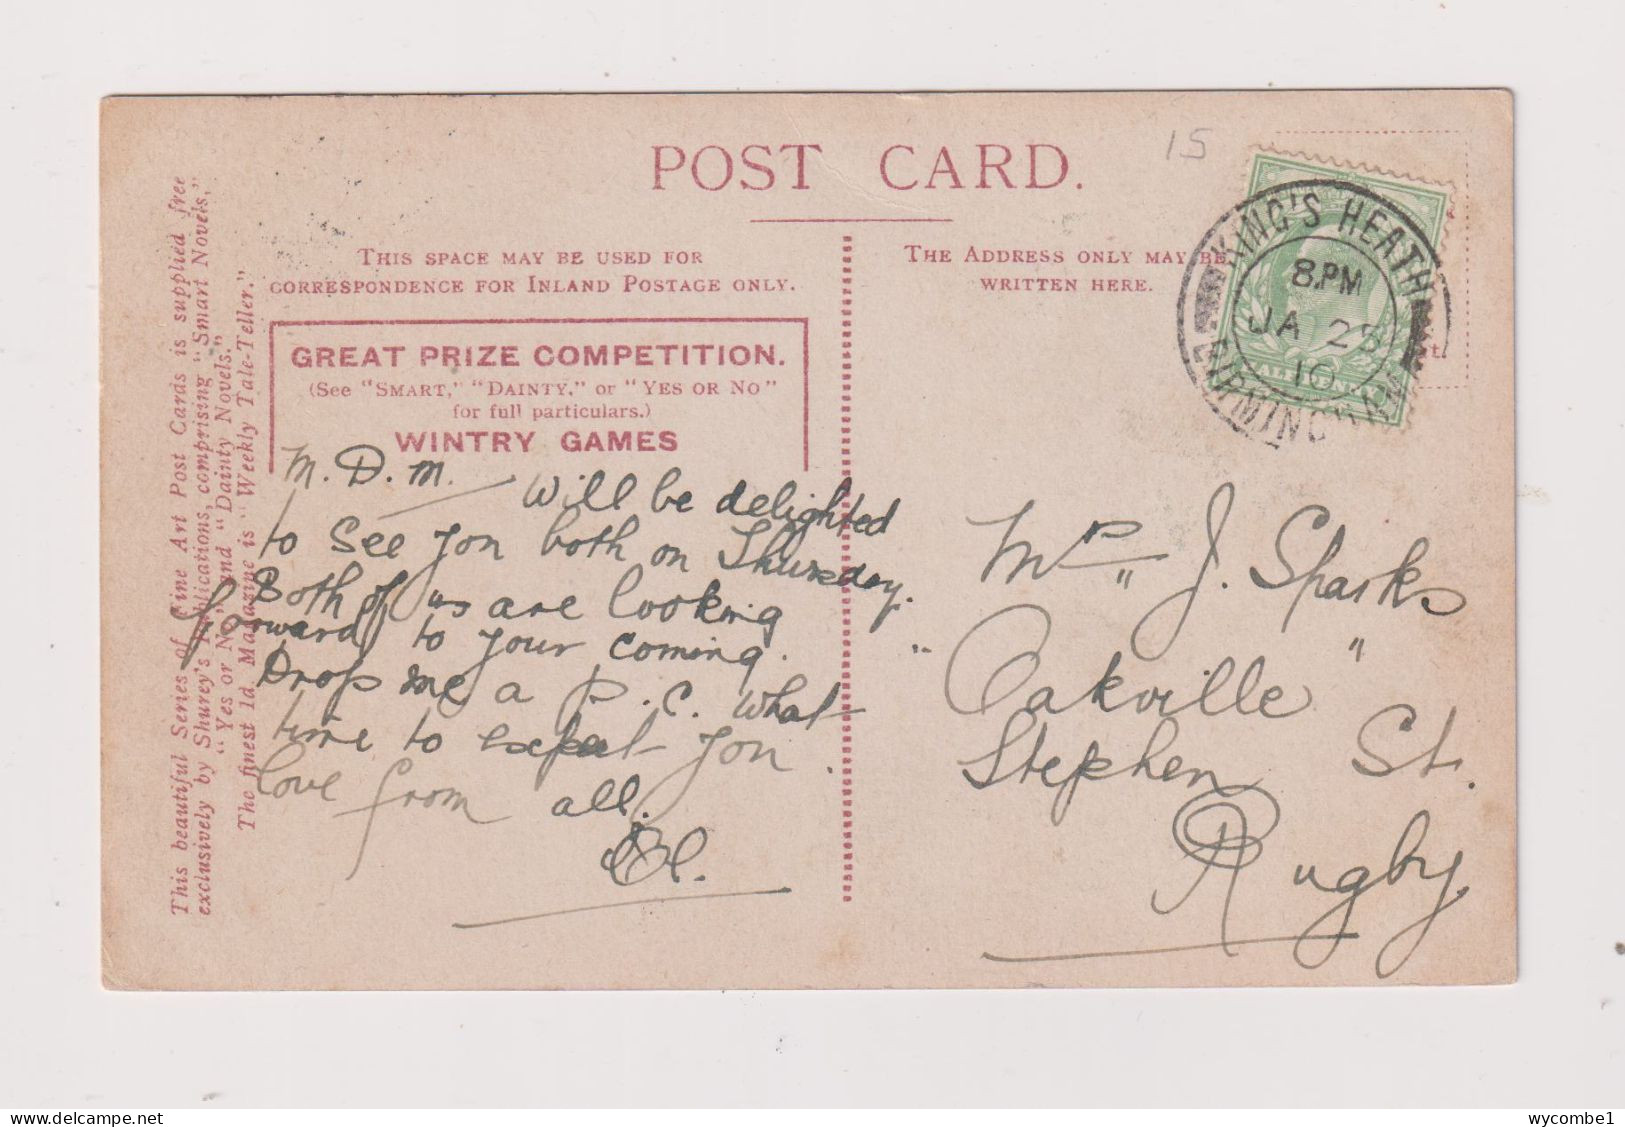 15
POST CARD.
THIS SPACE MAY BE USED FOR
CORRESPONDENCE FOR INLAND POSTAGE ONLY.
THE ADDRESS ONLY MAY BE
WRITTEN HERE.
KING'S HEATH
8.PM
JA 25
10
BIRMINGHAM
GREAT PRIZE COMPETITION.
(See "SMART," "DAINTY," or "YES OR NO"
for full particulars.)
WINTRY GAMES
M.D.M. — Will be delighted
to see you both on Thursday.
Both of us are looking
forward to your coming.
Drop me a p.c. what
time to expect you.
love from all.
Mrs J. Sparks
"Oakville"
Stephen St.
Rugby
This beautiful Series of Fine Art Post Cards is supplied free
exclusively by Shurey's Publications, comprising "Smart Novels,"
"Yes or No," and "Dainty Novels."
The finest 1d. Magazine is "Weekly Tale-Teller."
wycombe1